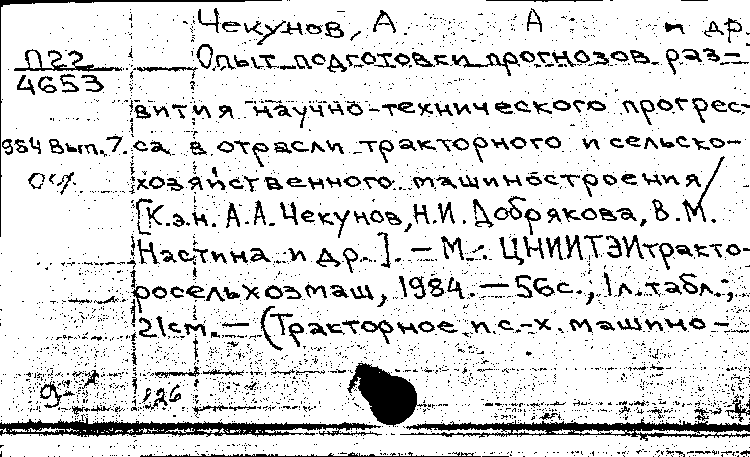 Чекунов, А. А и др.
П22
4653
Опыт подготовки прогнозов раз-
вития научно-технического прогрес-
984 Вып. 7.
са в отрасли тракторного и сельско-
хозяйственного машиностроения /
[К.э.н. А.А. Чекунов, Н.И. Добрякова, В.М.
Настина и др.]. — М.: ЦНИИТЭИтракто-
росельхозмаш, 1984. — 56с., 1л. табл.;
21см. — (Тракторное и с.-х. машино-